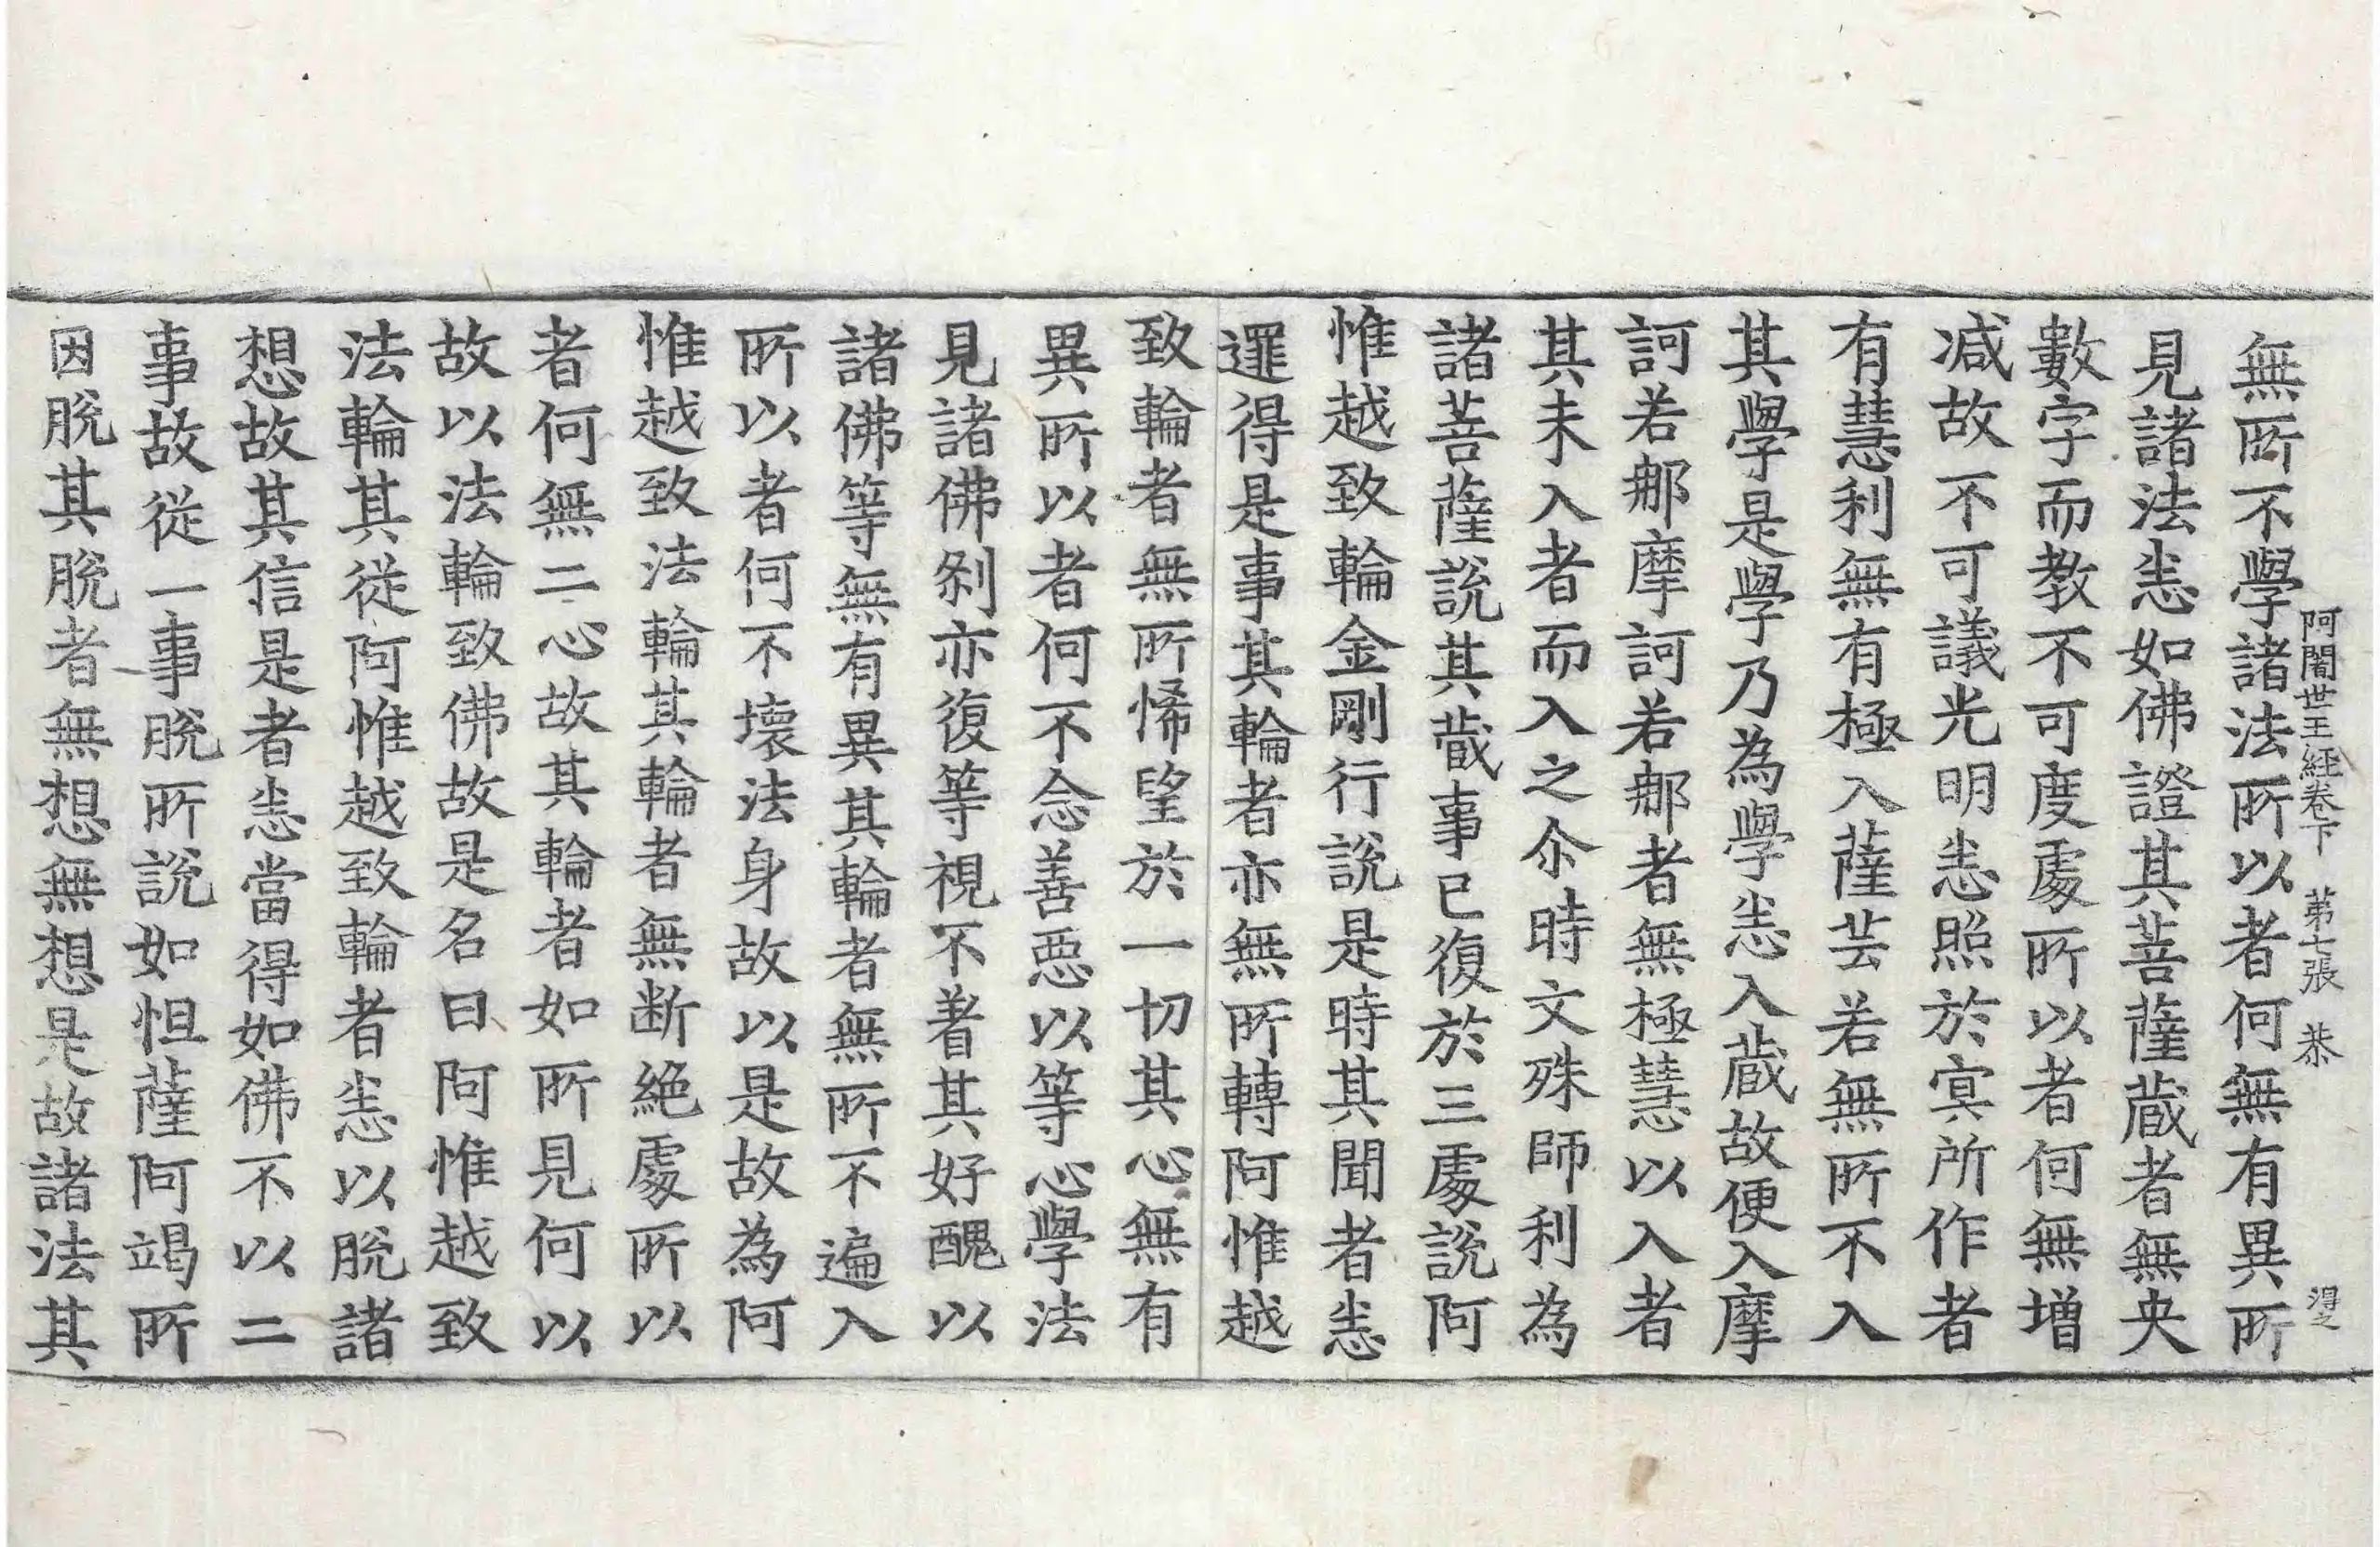 阿闍世王経卷下　第七張　㳟　得之
無所不學諸法所以者何無有異所
見諸法悉如佛證其菩薩藏者無央
數字而教不可度處所以者何無增
减故不可議光明悉照於㝠所作者
有慧利無有極入薩芸若無所不入
其學是學乃為學悉入藏故便入摩
訶若那摩訶若那者無極慧以入者
其未入者而入之尒時文殊師利為
諸菩薩說其藏事已復於三處說阿
惟越致輪金剛行說是時其聞者悉
邏得是事其輪者亦無所轉阿惟越
致輪者無所悕望於一切其心無有
異所以者何不念善惡以等心學法
見諸佛剎亦復等視不著其好醜以
諸佛等無有異其輪者無所不遍入
所以者何不壞法身故以是故為阿
惟越致法輪其輪者無断絕處所以
者何無二心故其輪者如所見何以
故以法輪致佛故是名曰阿惟越致
法輪其從阿惟越致輪者悉以脫諸
想故其信是者悉當得如佛不以二
事故從一事脫所說如怛薩阿竭所
因脫其脫者無想無想是故諸法其